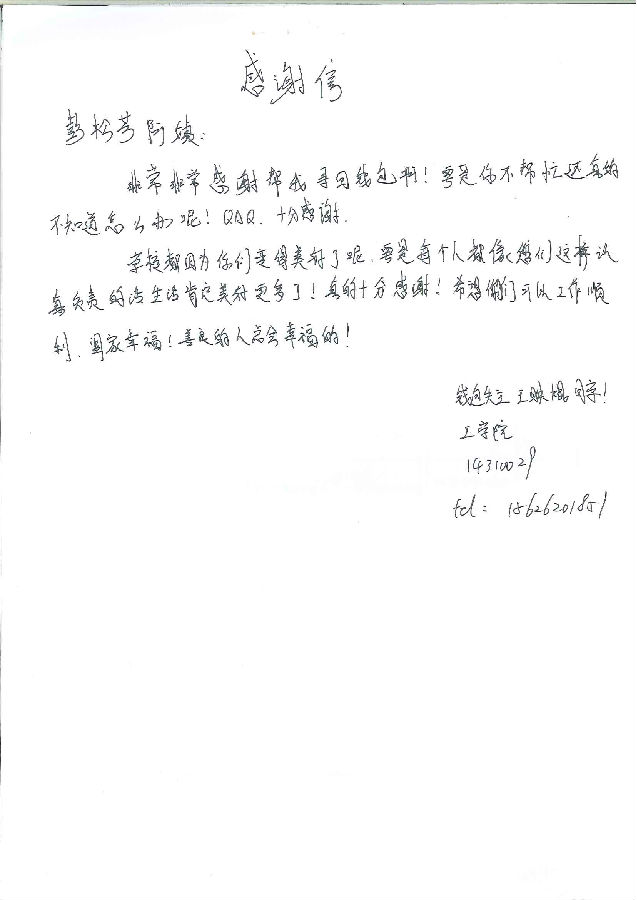 感谢信
彭松芳阿姨：
非常非常感谢帮我寻回钱包啊！要是你不帮忙还真的
不知道怎么办呢！QAQ. 十分感谢.
学校都因为你们变得美好了呢.要是每个人都像您们这样认
真负责的话生活肯定美好更多了！真的十分感谢！希望你们可以工作顺
利.阖家幸福！善良的人总会幸福的！
钱包失主 王 同学！
工学院
14310029
tel： 15626201851